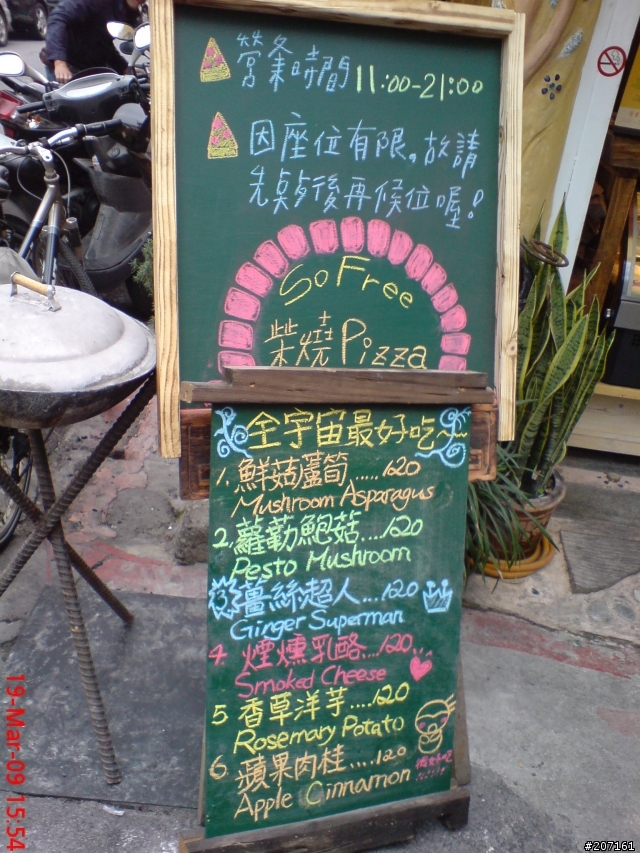 營業時間 11:00-21:00
因座位有限。故請
先點後再候位喔!
So Free
柴燒Pizza
全宇宙最好吃~
1. 鮮菇蘆筍.....120
Mushroom Asparagus
2. 蘿勒鮑菇....120
Pesto Mushroom
3. 薑絲超人...120
Ginger Superman
4. 煙燻乳酪....120
Smoked Cheese
5 香草洋芋....120
Rosemary Potato
6. 蘋果肉桂....120
Apple Cinnamon
19-Mar-09 15:54
#207161